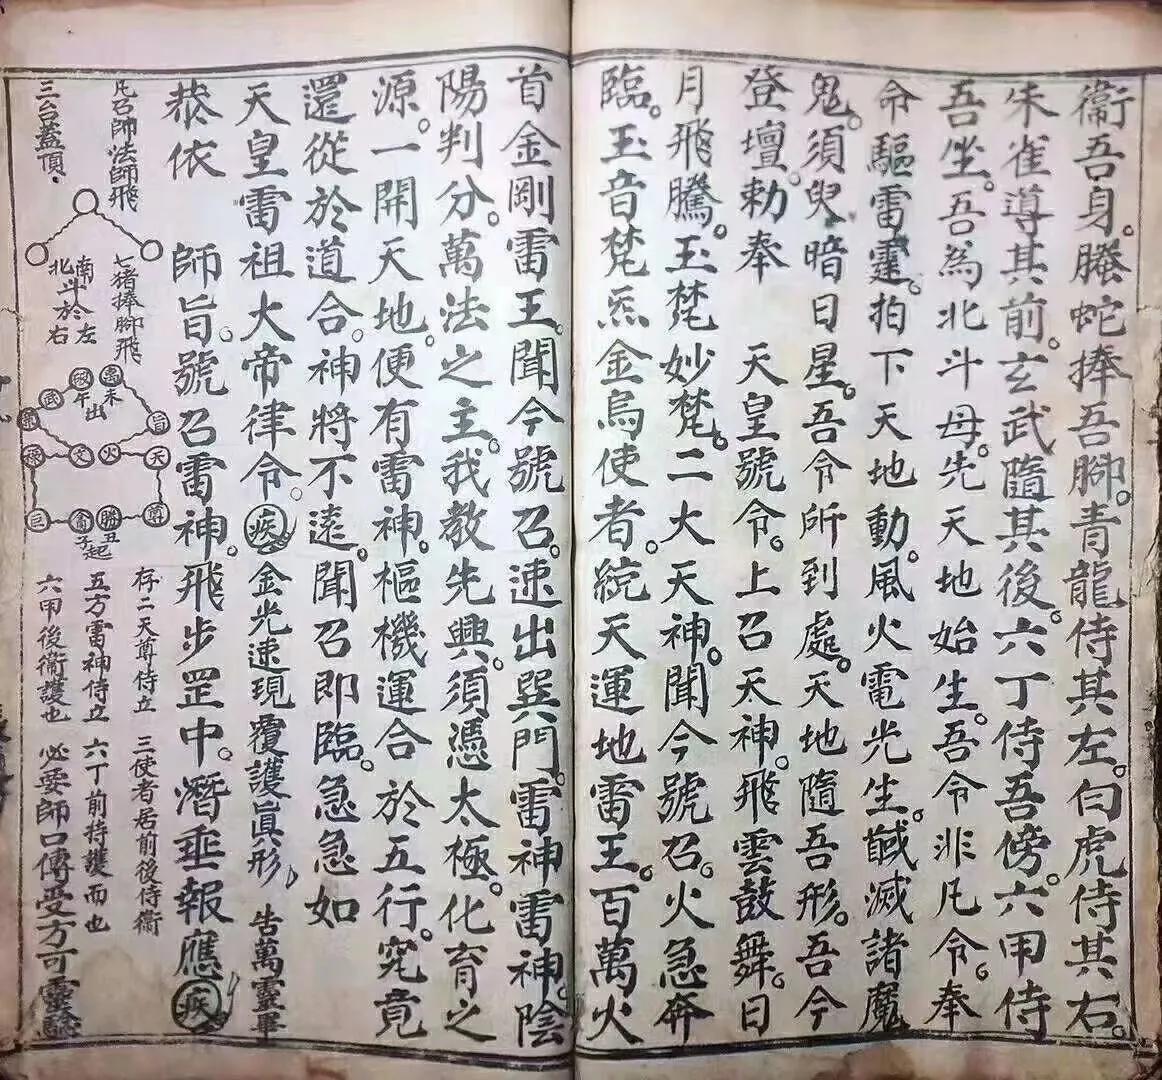 衞吾身。螣蛇捧吾脚。青龍侍其左。白虎侍其右。
朱雀導其前。玄武隨其後。六丁侍吾傍。六甲侍
吾坐。吾為北斗母。先天地始生。吾令非凡令。奉
命驅雷霆。拍下天地動。風火電光生。馘滅諸魔
鬼。須臾暗日星。吾令所到處。天地隨吾形。吾今
登壇。勅奉 天皇號令。上召天神。飛雲鼓舞。日
月飛騰。玉梵妙梵。二大天神。聞今號召。火急奔
臨。玉音梵炁金烏使者。統天運地雷王。百萬火
首金剛雷王。聞今號召。速出巽門。雷神雷神。陰
陽判分。萬法之主。我教先興。須憑太極。化育之
源。一開天地。便有雷神。樞機運合於五行。究竟
還從於道合。神將不遠。聞召即臨。急急如
天皇雷祖大帝律令。疾 金光速現 覆護眞形 告萬靈畢
恭依 師旨。號召雷神。飛步罡中。潛垂報應 疾
凡召師法師飛
三台蓋頂
七猪捧脚飛
南斗於左
北斗於右
武 午 未 出
旨
文 火 天
巨 勝 尊
子 丑起
存二天尊侍立 三使者居前後侍衞
五方雷神侍立 六丁前持護而也
六甲後衞護也 必要師口傳受方可靈驗